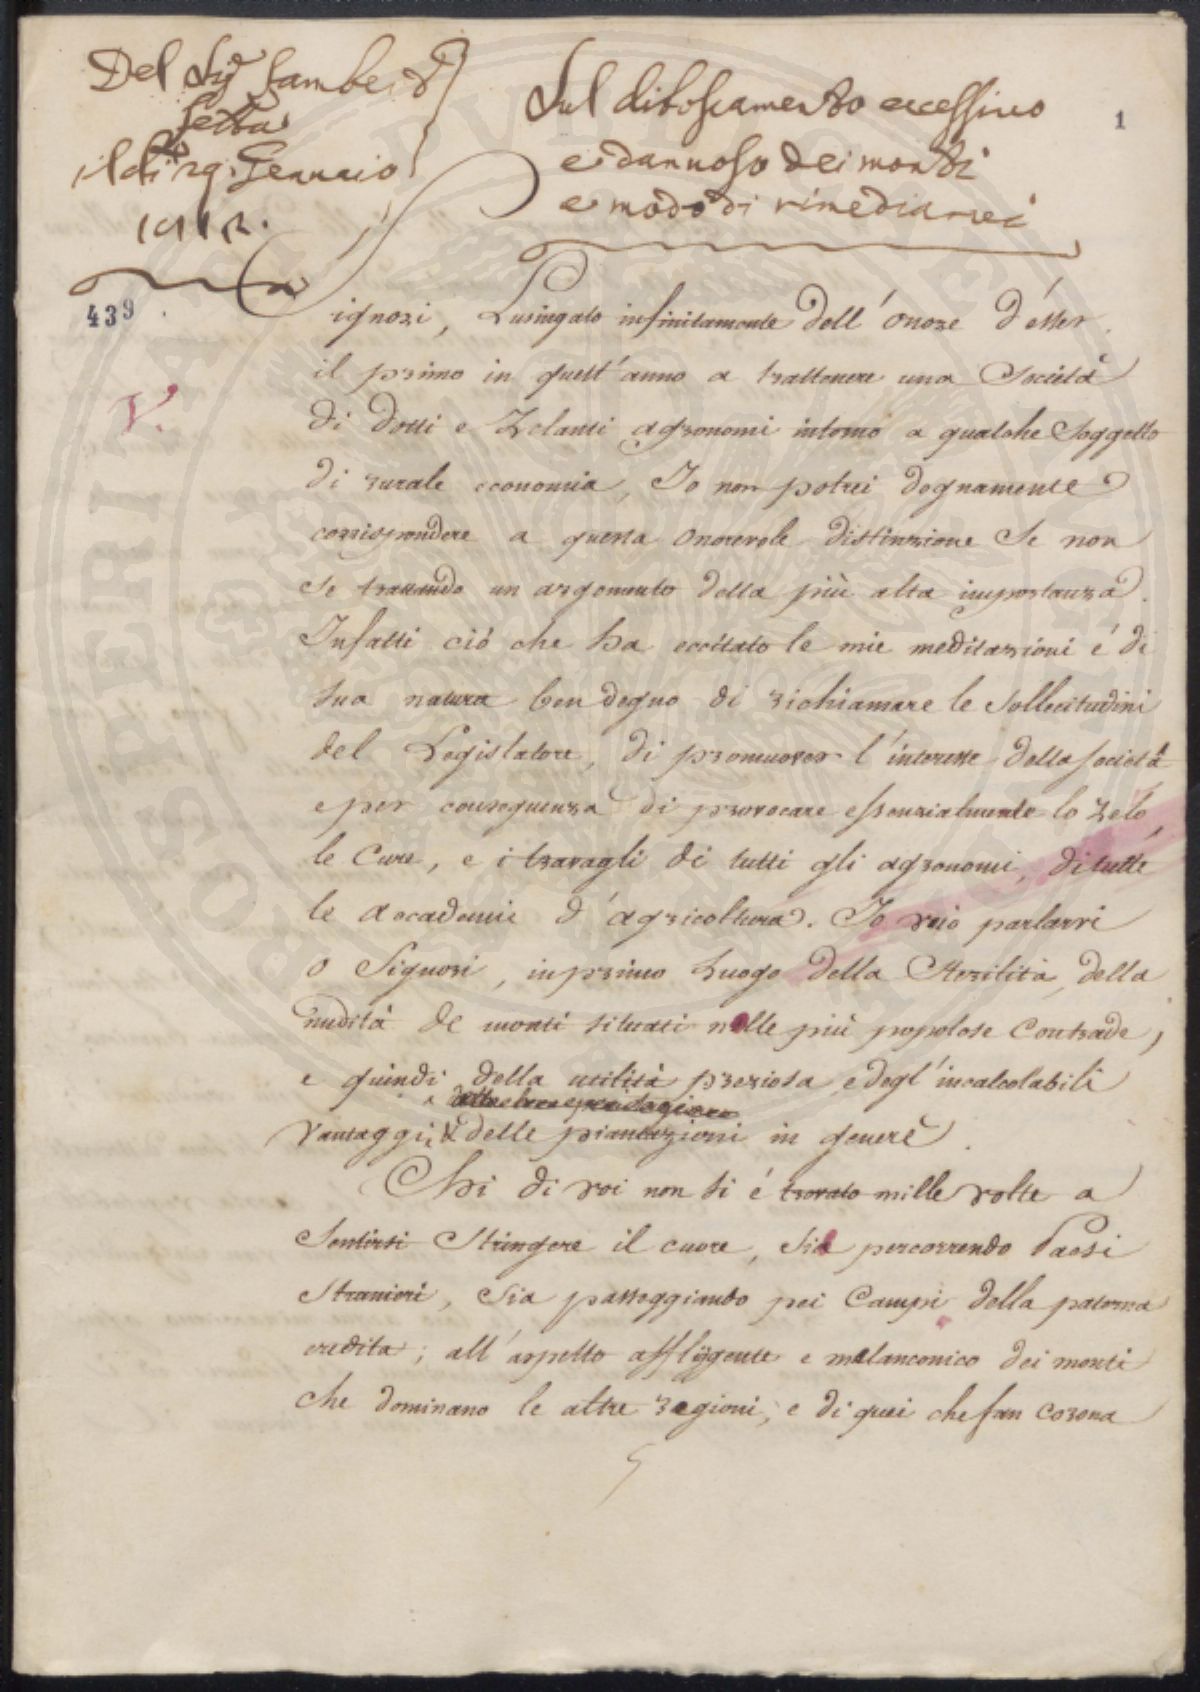 Del Sig.r Lambert
letta
il dì 29. Gennaio
1812.
439
V.
Sul diboscamento eccessivo
e dannoso dei monti
e modo di rimediarvi
1
Signori, Lusingato infinitamente dell'onore d'esser
il primo in quest'anno a trattenere una Società
di dotti e Zelanti agronomi intorno a qualche Soggetto
di rurale economia, Io non potrei degnamente
corrispondere a questa onorevole distinzione Se non
Se trattando un argomento della più alta importanza.
Infatti ciò che ha eccitato le mie meditazioni é di
Sua natura ben degno di richiamare le Sollecitudini
del Legislatore, di promuover l'interesse della Società
e per conseguenza di provocare essenzialmente lo Zelo,
le Cure, e i travagli di tutti gli agronomi, di tutte
le accademie d'agricoltura. Io vuò parlarvi
o Signori, in primo luogo della Sterilità, della
nudità de monti situati nelle più popolose Contrade,
e quindi della utilità preziosa e degl'incalcolabili
Vantaggi delle piantazioni in genere.
Chi di voi non si é trovato mille volte a
Sentirsi Stringere il cuore, Sia percorrendo Paesi
Stranieri, Sia passeggiando pei Campi della paterna
eredità; all'aspetto affliggente e melanconico dei monti
che dominano le altre regioni, e di quei che fan Corona